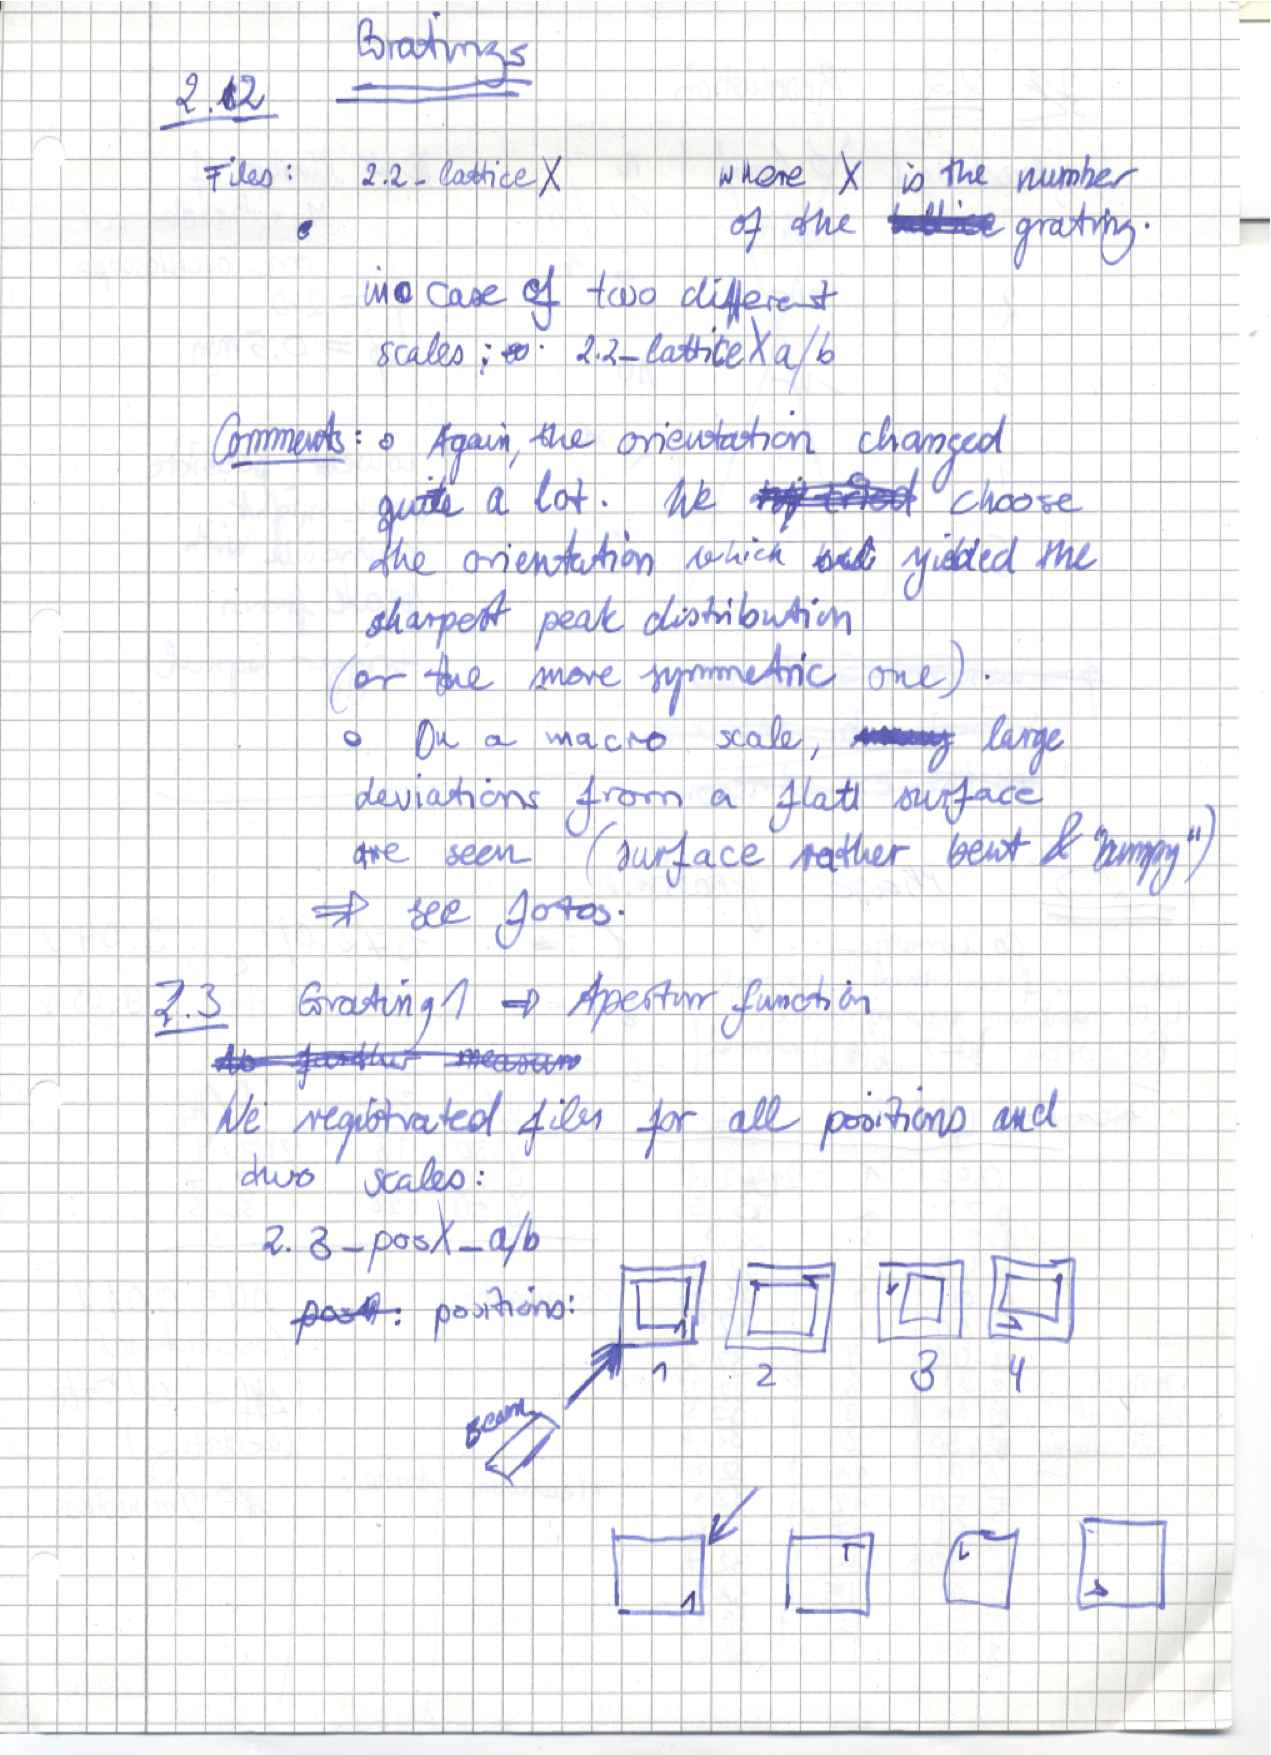 Gratings
2.2
Files: 2.2-latticeX where X is the number
of the grating.
in case of two different
scales: 2.2-latticeXa/b
Comments: o Again, the orientation changed
quite a lot. We choose
the orientation which yielded the
sharpest peak distribution
(or the more symmetric one).
o On a macro scale, large
deviations from a flat surface
are seen (surface rather bent & "bumpy")
⇒ see fotos.
2.3 Grating 1 ⇒ Apertur function
No further measure
We registrated files for all positions and
two scales:
2.3-posX-a/b
positions:
1 2 3 4
Beam
1